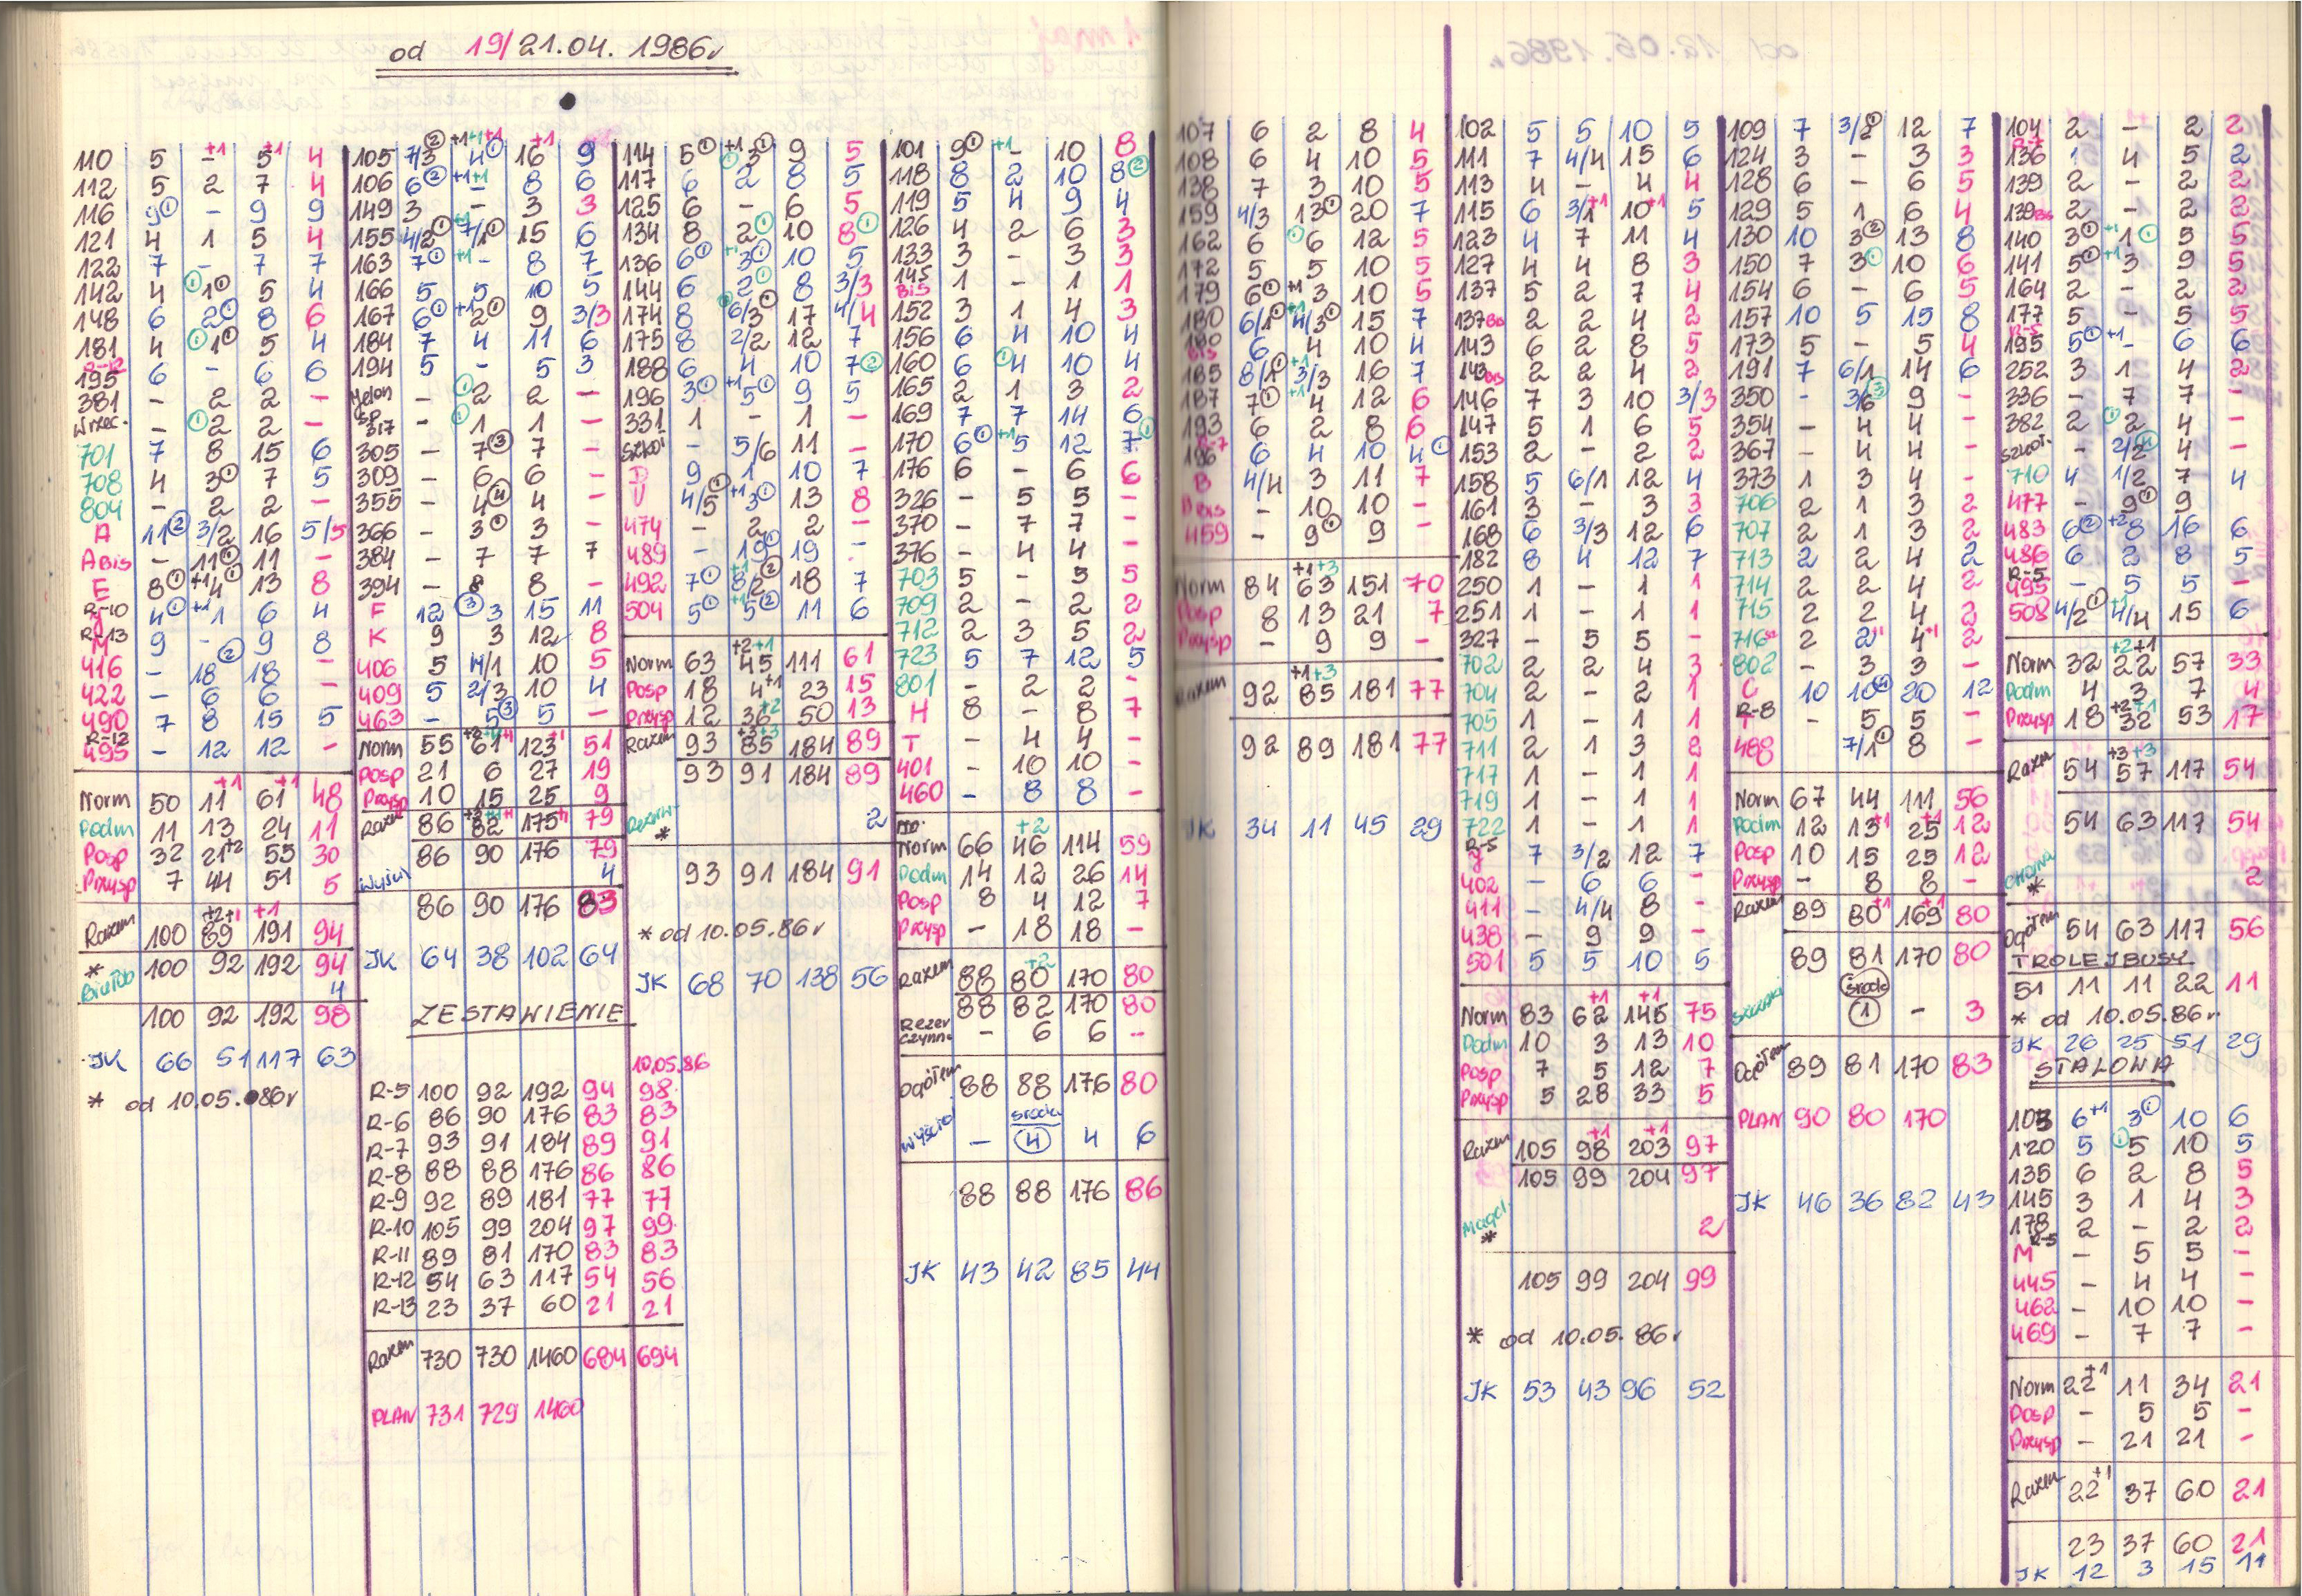 od 19/21.04.1986r
110 5 - +1 5 +1 4
112 5 2 7 4
116 9① - 9 9
121 4 1 5 4
122 7 - 7 7
142 4 ① 1① 5 4
148 6 2① 8 6
181 4 ① 1① 5 4
R-12
195 6 - 6 6
381 - 2 2 -
Wrzec. - ① 2 2 -
701 7 8 15 6
708 4 3① 7 5
804 - 2 2 -
A 11② 3/2 16 5/5
A bis - 11① 11 -
E 8① +1 4① 13 8
R-10
J 4① +1 1 6 4
R-13
M 9 - 9 8
416 - 18② 18 -
422 - 6 6 -
490 7 8 15 5
R-12
495 - 12 12 -
Norm 50 11+1 61+1 48
Podm 11 13 24 11
Posp 32 21+2 55 30
Przysp 7 44 51 5
Razem 100 89+2+1 191+1 94
* 100 92 192 94
4
100 92 192 98
JK 66 51 117 63
* od 10.05.086r
105 7/3② +1+1+1 4① 16+1 9
106 6② +1+1 - 8 6
149 3 - 3 3
155 4/2① +1 7/1① 15 6
163 7① +1 - 8 7
166 5 5 10 5
167 6① +1 2① 9 3/3
184 7 4 11 6
194 5 - 5 3
Jelon - ① 2 2 -
sp.
317 - ① 1 1 -
305 - 7③ 7 -
309 - 6 6 -
355 - 4④ 4 -
366 - 3① 3 -
384 - 7 7 7
394 - 8 8 -
F 12 ③ 3 15 11
K 9 3 12 8
406 5 4/1 10 5
409 5 2/3 10 4
463 - 5③ 5 -
Norm 55 61 123 51
Posp 21 6 27 19
Przysp 10 15 25 9
Razem 86 82 175 79
86 90 176 79
4
86 90 176 83
JK 64 38 102 64
ZESTAWIENIE
10.05.86
R-5 100 92 192 94 98
R-6 86 90 176 83 83
R-7 93 91 184 89 91
R-8 88 88 176 86 86
R-9 92 89 181 77 77
R-10 105 99 204 97 99
R-11 89 81 170 83 83
R-12 54 63 117 54 56
R-13 23 37 60 21 21
Razem 730 730 1460 684 694
PLAN 731 729 1460
114 5① +1 3① 9 5
117 6 2 8 5
125 6 - 6 5
134 8 2① 10 8①
136 6① +1 3① 10 5
144 6 2① 8 3/3
174 8 6/3① 17 4/4
175 8 2/2 12 7
188 6 4 10 7②
196 3① +1 5① 9 5
331 1 - 1 -
Szkol - 5/6 11 -
D 9 1 10 7
U 4/5① +1 3① 13 8
474 - 2 2 -
489 - 19① 19 -
492 7① +1 8/2② 18 7
504 5① +1 5② 11 6
Norm 63 45+2+1 111 61
Posp 18 4+1 23 15
Przysp 12 36+2 50 13
Razem 93 85+3+3 184 89
93 91 184 89
Rezerw.
* 2
93 91 184 91
* od 10.05.86r
JK 68 70 138 56
101 9① +1 - 10 8
118 8 2 10 8②
119 5 4 9 4
126 4 2 6 3
133 3 - 3 3
145
BIS 1 - 1 1
152 3 1 4 3
156 6 4 10 4
160 6 ① 4 10 4
165 2 1 3 2
169 7 7 14 6
170 6① +1 5 12 7①
176 6 - 6 6
326 - 5 5 -
370 - 7 7 -
376 - 4 4 -
703 5 - 5 5
709 2 - 2 2
712 2 3 5 2
723 5 7 12 5
801 - 2 2 -
H 8 - 8 7
T - 4 4 -
401 - 10 10 -
460 - 8 8 -
Norm 66 46+2 114 59
Podm 14 12 26 14
Posp 8 4 12 7
Przysp - 18 18 -
Razem 88 80+2 170 80
88 82 170 80
Rezer
czynna - 6 6 -
Ogółem 88 88 176 80
środa
Wyścig - ④ 4 6
88 88 176 86
JK 43 42 85 44
107 6 2 8 4
108 6 4 10 5
138 7 3 10 5
159 4/3 13① 20 7
162 6 ① 6 12 5
172 5 5 10 5
179 6① +1 3 10 5
180 6/1① +1 4/3① 15 7
180
bis 6 4 10 4
185 8/1① +1 3/3 16 7
187 7① +1 4 12 6
193 6 2 8 6
R-7
196 6 4 10 4①
B 4/4 3 11 7
B bis - 10 10 -
459 - 9① 9 -
Norm 84 63+1+3 151 70
Posp 8 13 21 7
Przysp - 9 9 -
Razem 92 85+1+3 181 77
92 89 181 77
JK 34 11 45 29
102 5 5 10 5
111 7 4/4 15 6
113 4 - 4 4
115 6 3/1+1 10+1 5
123 4 7 11 4
127 4 4 8 3
137 5 2 7 4
137 Bis 2 2 4 2
143 6 2 8 5
143 bis 2 2 4 2
146 7 3 10 3/3
147 5 1 6 5
153 2 - 2 2
158 5 6/1 12 4
161 3 - 3 3
168 6 3/3 12 6
182 8 4 12 7
250 1 - 1 1
251 1 - 1 1
327 - 5 5 -
702 2 2 4 3
704 2 - 2 1
705 1 - 1 1
711 2 1 3 2
717 1 - 1 1
719 1 - 1 1
722 1 - 1 1
R-5
J 7 3/2 12 7
402 - 6 6 -
411 - 4/4 8 -
438 - 9 9 -
501 5 5 10 5
Norm 83 62+1 145+1 75
Podm 10 3 13 10
Posp 7 5 12 7
Przysp 5 28 33 5
Razem 105 98+1 203+1 97
105 99 204 97
* 2
105 99 204 99
* od 10.05.86r
JK 53 43 96 52
109 7 3/2① 12 7
124 3 - 3 3
128 6 - 6 5
129 5 1 6 4
130 10 3② 13 8
150 7 3① 10 6
154 6 - 6 5
157 10 5 15 8
173 5 - 5 4
191 7 6/1 14 6
350 - 3/6③ 9 -
354 - 4 4 -
367 - 4 4 -
373 1 3 4 -
706 2 1 3 2
707 2 1 3 2
713 2 2 4 2
714 2 2 4 2
715 2 2 4 2
716 2 2+1 4+1 2
802 - 3 3 -
C 10 10④ 20 12
R-8
T - 5 5 -
488 7/1① 8 -
Norm 67 44 111 56
Podm 12 13+1 25+1 12
Posp 10 15 25 12
Przysp - 8 8 -
Razem 89 80+1 169+1 80
89 81 170 80
środa
① - 3
Ogółem 89 81 170 83
PLAN 90 80 170
JK 46 36 82 43
104 2 - 2 2
R-7
136 1 4 5 2
139 2 - 2 2
139 Bis 2 - 2 2
140 3① +1 1① 5 5
141 5① +1 3 9 5
164 2 - 2 2
177 5 - 5 5
R-5
195 5① +1 - 6 6
252 3 1 4 2
336 - 7 7 -
382 2 ① 2 4 -
szkol. - 2/2④ 4 -
710 4 1/2 7 4
477 - 9① 9
483 6② +2 8 16 6
486 6 2 8 5
R-5
495 - 5 5 -
508 4/2① +1 4/4 15 6
Norm 32 22+2+1 57 33
Podm 4 3 7 4
Przysp 18 32+2+1 53 17
Razem 54 57+3+3 117 54
54 63 117 54
* 2
Ogółem 54 63 117 56
TROLEJBUSY
51 11 11 22 11
* od 10.05.86r
JK 26 25 51 29
STALOWA
103 6+1 3① 10 6
120 5 ① 5 10 5
135 6 2 8 5
145 3 1 4 3
178 2 - 2 2
R-5
M - 5 5 -
445 - 4 4 -
462 - 10 10 -
469 - 7 7 -
Norm 22+1 11 34 21
Posp - 5 5 -
Przysp - 21 21 -
Razem 22+1 37 60 21
23 37 60 21
JK 12 3 15 11